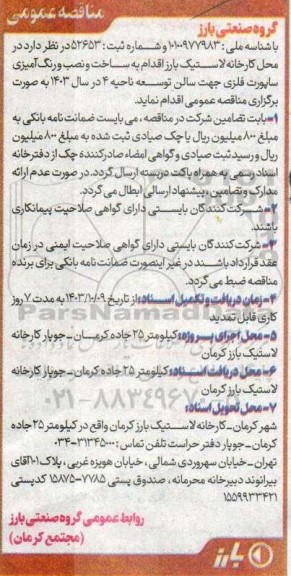 مناقصه عمومی
گروه صنعتی بارز
با شناسه ملی : ۱۰۱۰۰۹۷۷۹۸۳ و شماره ثبت : ۵۲۶۵۳ در نظر دارد در
محل کارخانه لاستیک بارز اقدام به ساخت و نصب و رنگ آمیزی
ساپورت فلزی جهت سالن توسعه ناحیه ۴ در سال ۱۴۰۳ به صورت
برگزاری مناقصه عمومی اقدام نماید.
۱- بابت تضامین شرکت در مناقصه ، می بایست ضمانت نامه بانکی به
مبلغ ۸۰۰ میلیون ریال یا چک صیادی ثبت شده به مبلغ ۸۰۰ میلیون
ریال و رسید ثبت صیادی و گواهی امضاء صادرکننده چک از دفترخانه
اسناد رسمی به همراه پاکت دربسته ارسال گردد. در صورت عدم ارائه
مدارک و تضامین ، پیشنهاد ارسالی ابطال می گردد.
۲- شرکت کنندگان بایستی دارای گواهی صلاحیت پیمانکاری
باشند.
۳- شرکت کنندگان بایستی دارای گواهی صلاحیت ایمنی در زمان
عقد قرارداد باشند در غیر اینصورت ضمانت نامه بانکی برای برنده
مناقصه ضبط می گردد.
۴- زمان دریافت و تکمیل اسناد: از تاریخ ۱۴۰۳/۱۰/۰۹ به مدت ۷ روز
کاری قابل تمدید
۵- محل اجرای پروژه: کیلومتر ۲۵ جاده کرمان - جوپار کارخانه
لاستیک بارز کرمان
۶- محل دریافت اسناد: کیلومتر ۲۵ جاده کرمان - جوپار کارخانه
لاستیک بارز کرمان
۷- محل تحویل اسناد:
شهر کرمان - کارخانه لاستیک بارز کرمان واقع در کیلومتر ۲۵ جاده
کرمان - جوپار دفتر حراست تلفن تماس : ۳۱۳۴۵۰۰۰-۰۳۴
تهران - خیابان سهروردی شمالی ، خیابان هویزه غربی ، پلاک ۱۰۱ آقای
بیرانوند دبیرخانه محرمانه ، صندوق پستی ۷۷۸۵-۱۵۸۷۵ کدپستی
۱۵۵۹۹۳۳۴۲۱
روابط عمومی گروه صنعتی بارز
(مجتمع کرمان)
بارز
ParsNamad
۰۲۱-۸۸۳۴۹۶۷۰